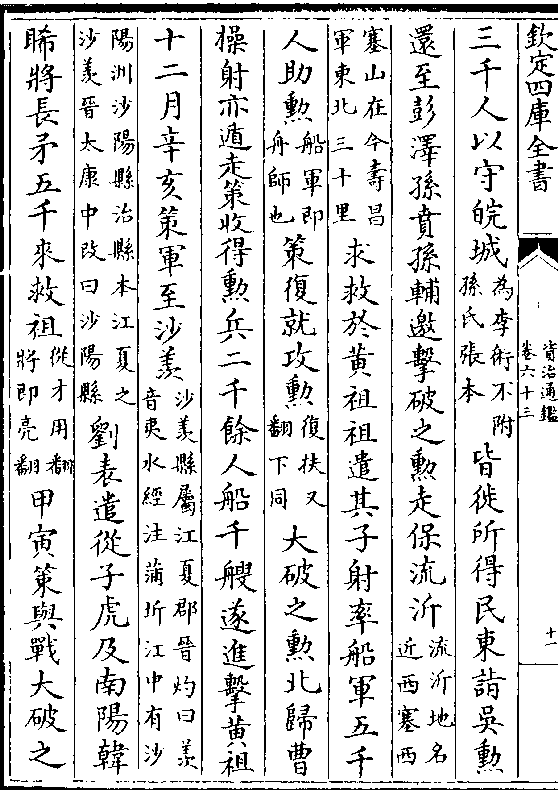 欽定四庫全書
資治通鑑
卷六十三
十一
三千人以守皖城為李術不附孫氏張本皆徙所得民東詣吳勲
還至彭澤孫賁孫輔邀擊破之勲走保流沂流沂地名近西塞西
塞山在今壽昌軍東北三十里求救於黄祖祖遣其子射率船軍五千
人助勲船軍即舟師也策復就攻勲復扶又翻下同大破之勲北歸曹
操射亦遁走策收得勲兵二千餘人船千艘遂進擊黄祖
十二月辛亥策軍至沙羡沙羡縣屬江夏郡晉灼曰羡音夷水經注蒲圻江中有沙
陽洲沙陽縣治縣本江夏之沙羡晉太康中改曰沙陽縣劉表遣從子虎及南陽韓
晞將長矛五千來救祖從才用翻將即亮翻甲寅策與戰大破之